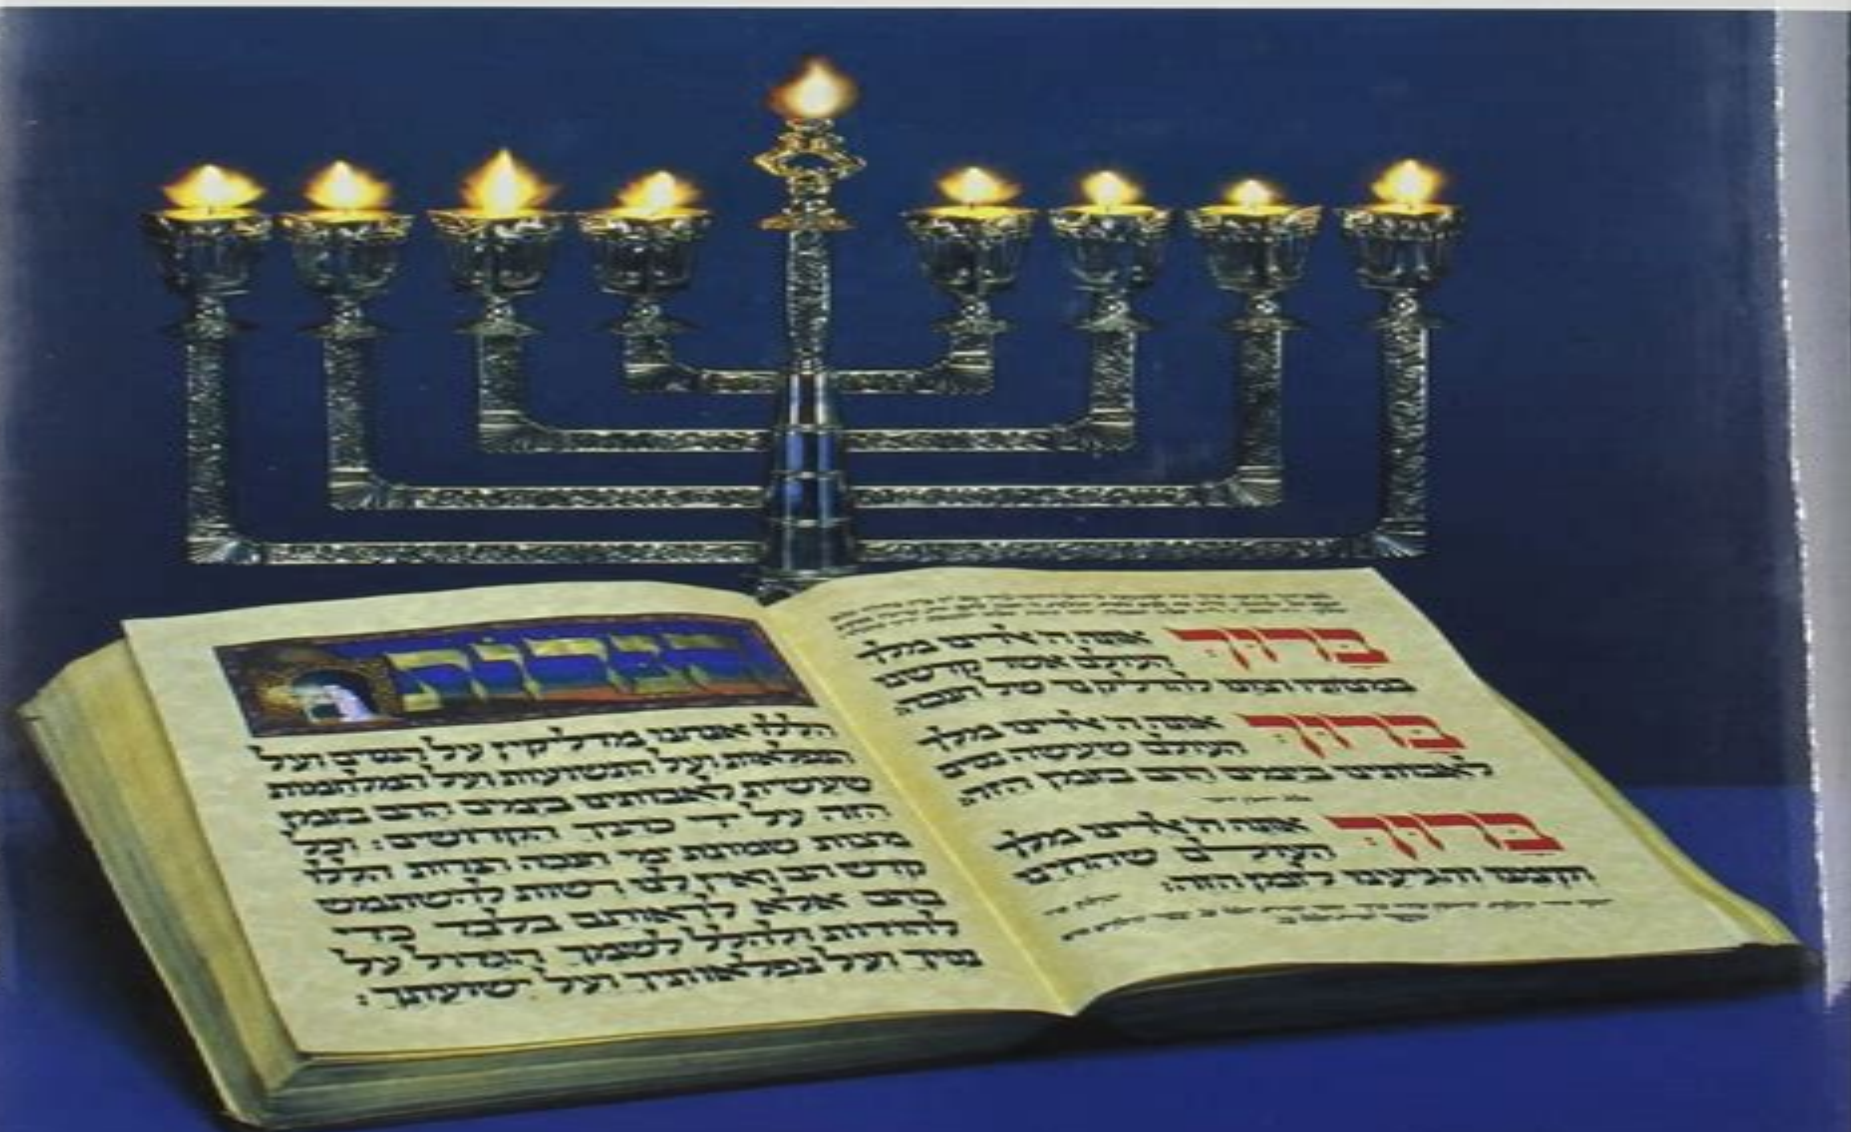 בָּרוּךְ אתה ה' אלהינו מלך
העולם אשר קדשנו
במצותיו וצונו להדליק נר של חנכה:
בָּרוּךְ אתה ה' אלהינו מלך
העולם שעשה נסים
לאבותינו בימים ההם בזמן הזה:
בָּרוּךְ אתה ה' אלהינו מלך
העולם שהחינו
וקימנו והגיענו לזמן הזה:
הנרות
הללו אנחנו מדליקין על הנסים ועל
הנפלאות ועל התשועות ועל המלחמות
שעשית לאבותינו בימים ההם בזמן
הזה על ידי כהניך הקדושים: וכל
מצות שמונת ימי חנכה הנרות הללו
קדש הם ואין לנו רשות להשתמש
בהם אלא לראותם בלבד כדי
להודות ולהלל לשמך הגדול על
נסיך ועל נפלאותיך ועל ישועתך: